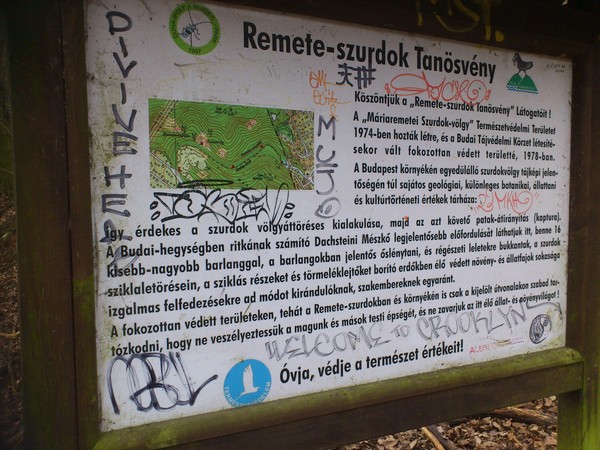 Remete-szurdok Tanösvény
Köszöntjük a „Remete-szurdok Tanösvény" Látogatóit !
A „Máriaremetei Szurdok-völgy" Természetvédelmi Területet
1974-ben hozták létre, és a Budai Tájvédelmi Körzet létesíté-
sekor vált fokozottan védett területté, 1978-ban.
A Budapest környékén egyedülálló szurdokvölgy tájképi jelen-
tőségén túl sajátos geológiai, különleges botanikai, állattani
és kultúrtörténeti értékek tárháza:
Így érdekes a szurdok völgyáttöréses kialakulása, majd az azt követő patak-átirányítás (kaptura).
A Budai-hegységben ritkának számító Dachsteini Mészkő legjelentősebb előfordulását láthatjuk itt, benne 16
kisebb-nagyobb barlanggal, a barlangokban jelentős őslénytani, és régészeti leletekre bukkantak, a szurdok
sziklaletörésein, a sziklás részeket és törmeléklejtőket borító erdőkben élő védett növény- és állatfajok sokasága
izgalmas felfedezésekre ad módot kirándulóknak, szakembereknek egyaránt.
A fokozottan védett területeken, tehát a Remete-szurdokban és környékén is csak a kijelölt útvonalakon szabad tar-
tózkodni, hogy ne veszélyeztessük a magunk és mások testi épségét, és ne zavarjuk az itt élő állat- és növényvilágot !
Óvja, védje a természet értékeit!
DIVINEHERO
MCUO
WELCOME TO CROOKLYN